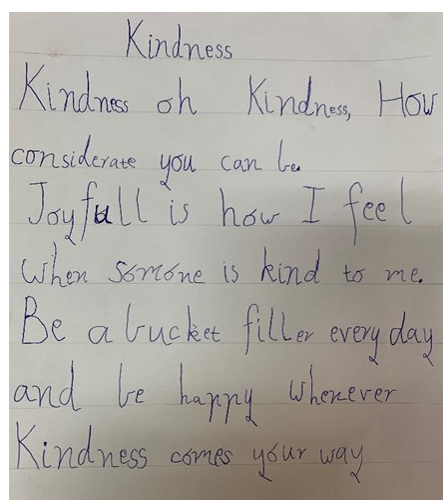 Kindness
Kindness oh Kindness, How
considerate you can be.
Joyfull is how I feel
when somone is kind to me.
Be a bucket filler every day
and be happy whenever
Kindness comes your way